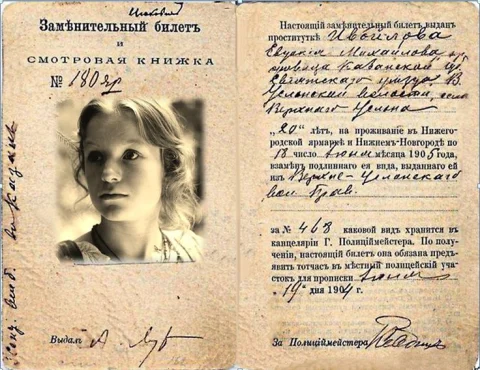 Замѣнительный билетъ
и
СМОТРОВАЯ КНИЖКА
№ 180 яр
Выдалъ
Настоящій замѣнительный билетъ выданъ
проституткѣ
Евдокія Михайлова
Казанской
Свіяжскаго уѣзда В.
Услонской волости, села
Верхняго Услона
„20“ лѣтъ, на проживаніе въ Нижего-
родской ярмаркѣ и Нижнемъ-Новгородѣ по
18 число іюня мѣсяца 1905 года,
взамѣнъ подлиннаго ея вида, выданнаго ей
изъ Верхне-Услонскаго
вол. Прав.
за № 468 каковой видъ хранится въ
канцеляріи Г. Полиціймейстера. По полу-
ченіи, настоящій билетъ она обязана предъ-
явить тотчасъ въ мѣстный полицейскій учас-
токъ для прописки іюня
„19“ дня 1904 г.
За Полиціймейстера